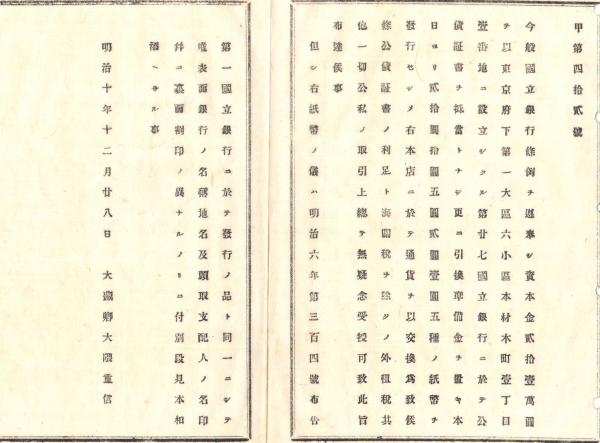 甲第四拾貳號
今般國立銀行條例ヲ遵奉シ資本金貳拾壹萬圓
ヲ以東京府下第一大區六小區本材木町壹丁目
壹番地ニ設立シタル第廿七國立銀行ニ於テ公
債証書ヲ抵當トナシ更ニ引換準備金ヲ置キ本
日ヨリ貳拾圓拾圓五圓貳圓壹圓五種ノ紙幣ヲ
發行セシメ右本店ニ於テ通貨ヲ以交換爲致候
條公債証書ノ利足ト海關税ヲ除クノ外租税其
他一切公私ノ取引上總テ無疑念受授可致此旨
布達候事
但シ右紙幣ノ儀ハ明治六年第三百四號布告
第一國立銀行ニ於テ發行ノ品ト同一ニシテ
唯表面銀行ノ名稱地名及頭取支配人ノ名印
幷ニ裏面割印ノ異ナルノミニ付別段見本相
添ヘサル事
明治十年十二月廿八日 大藏卿大隈重信